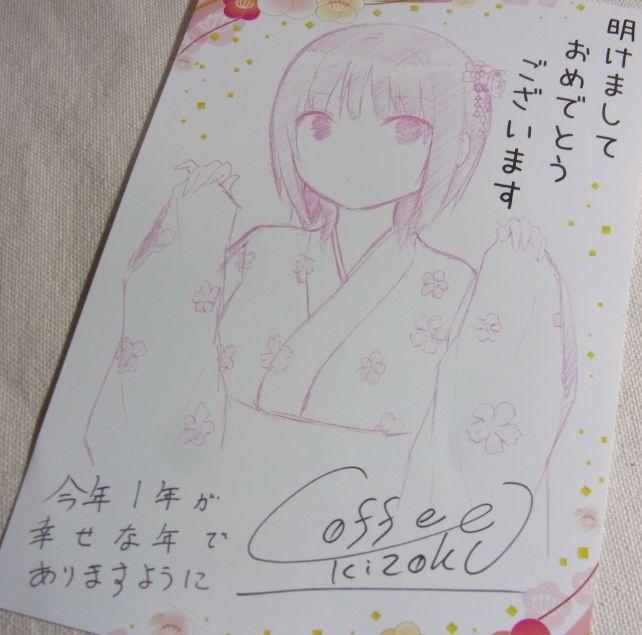 明けまして
おめでとう
ございます
今年1年が
幸せな年で
ありますように
Coffee
Kizoku